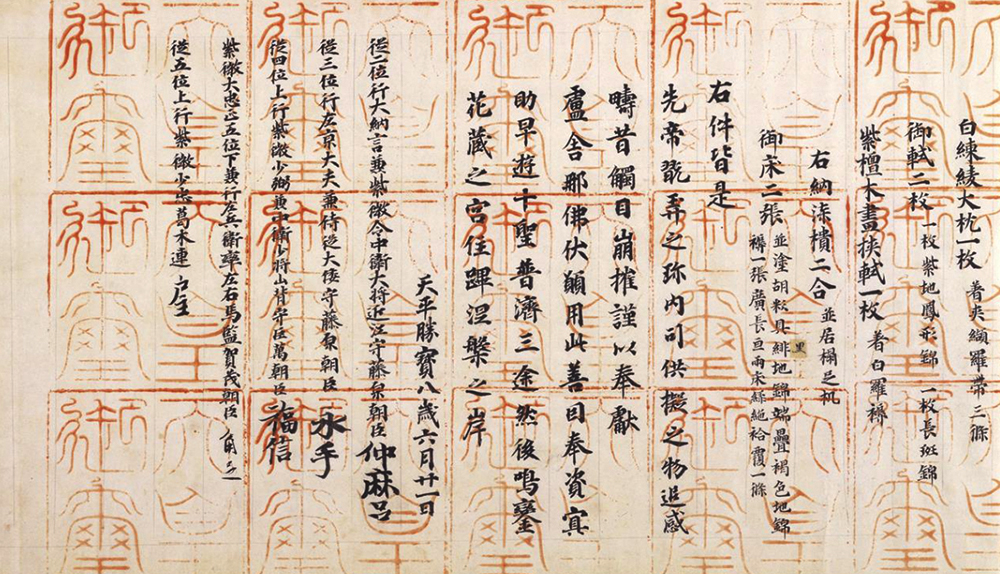 白練綾大枕一枚 著夾纈羅帶三條
御軾二枚 一枚紫地鳳形錦 一枚長斑錦
紫檀木畫挾軾一枚 著白羅褥
右納漆樻二合 並居榻足机
御床二張 並塗胡粉具緋地錦端疊褐色地錦
褥一張廣長亘兩床緑絁袷覆一條
黑
右件皆是
先帝翫弄之珍內司供擬之物追感
疇昔觸目崩摧謹以奉獻
盧舍那佛伏願用此善因奉資冥
助早遊十聖普濟三途然後鳴鑾
花藏之宮住蹕涅槃之岸
天平勝寶八歲六月廿一日
從二位行大納言兼紫微令中衛大將近江守藤原朝臣仲麻呂
從三位行左京大夫兼侍從大倭守藤原朝臣永手
從四位上行紫微少弼兼中衛少將山背守巨萬朝臣福信
紫微大忠正五位下兼行左兵衛率左右馬監賀茂朝臣角足
從五位上行紫微少忠葛木連戶主
天皇御璽